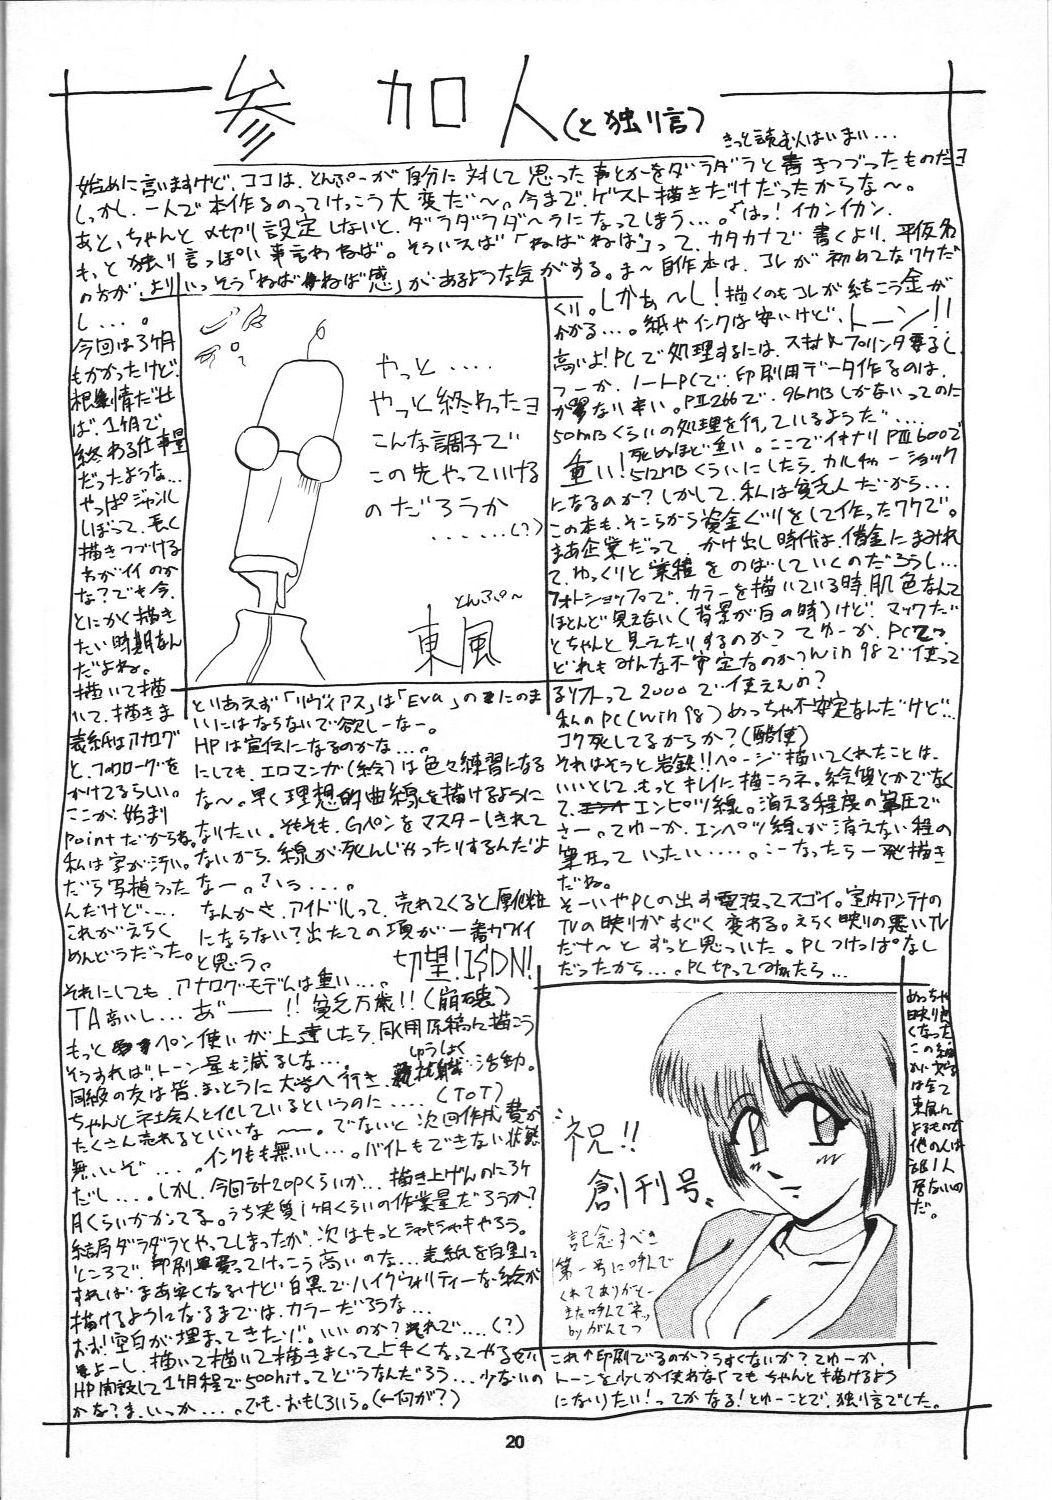 参加人(と独り言)
きっと読む人はいまい...
始めに言いますけど、ココは、とんぷーが自分に対して思った事とかをダラダラと書きつづったものだヨ
しかし、一人で本作るのってけっこう大変だ〜。今まで、ゲスト描きだけだったからな〜。
あと、ちゃんと〆切り設定しないと、ダラダラダ〜ラになってしまう...。はっ!イカンイカン、
もっと独り言っぽい事言わねば。そういえば「ねばねば」って、カタカナで書くより、平仮名
の方が、よりいっそう「ねばねば感」があるような気がする。ま〜自作本は、コレが初めてなワケだ
し....。
今回は3ヶ月
もかかったけど、
根性
ば、1ヶ月で
終わる仕事量
だったような...
やっぱジャンル
しぼって、長く
描きつづける
わがイイのか
な?でも今、
とにかく描き
たい時期なん
だよね。
描いて描
いて、描きま
表紙はアナログ
と、フォトローグを
かけてるらしい。
ここが、始まり
pointだからね。
私は字が汚い。
だら写植うった
んだけど....
これがえらく
めんどうだった。
やっと....
やっと終わったヨ
こんな調子で
この先やっていける
のだろうか
......(?)
とんぷ〜
東風
くり。しかぁ〜し!描くのもコレが結こう金が
かかる...。紙やインクは安いけど、トーン!!
高いよ!PCで処理するには、スキャナとプリンタ要るし、
つーか、ノートPCで、印刷用データ作るのは、
が異ない辛い。PⅡ266で、96MBしかないってのに
50MBくらいの処理を行っているようだ....
死ぬほど重い。ここでイキナリPⅢ600で
重い!512MBくらいにしたら、カルチャーショック
になるのか?しかして、私は貧乏人だから...
この本も、そこらから資金ぐりをして作ったワケで。
まあ企業だって、かけ出し時代は、借金にまみれ
て、ゆっくりと業種をのばしていくのだろうし...
フォトショップで、カラーを描いている時、肌色なんて
ほとんど見えない(背景が白の時)けど?マックだ
とちゃんと見えたりするのか?てゆーか、PCって
どれもみんな不安定なのか?win98で使って
るソフトって2000で使えんの?
私のPC(win98)めっちゃ不安定なんだけど...
コク死してるからか?(酷使)
それはそうと岩鉄!!ページ描いてくれたことは、
いいとして、もっとキレイに描こうネ。絵質とかでなく
て、エンピツ線。消える程度の筆圧で
さー。てゆーか、エンペツ線が消えない程の
筆圧っていったい.....。こーなったら一発描き
だね。
そーいやPCの出す電波ってスゴイ。室内アンテナの
TVの映りがすぐく変わる。えらく映りの悪いTV
だナ〜とずっと思っていた。PCつけっぱなし
だったから...。PC切ってつけたら...
めっちゃ
映り良
くなった
この細
かい文字
は全て
東風に
よるもので
他の人は
誰1人
居ないの
だ。
とりあえず「リヴァイアス」は「Eva」の二のま
いにはならないで欲しーなー。
HPは宣伝になるのかな...。
にしても、エロマンガ(絵)は色々練習になる
な〜。早く理想的曲線を描けるように
なりたい。そもそも、Gペンをマスターしきれて
ないから、線が死んじゃったりするんだよ
なー。さいぅ....。
なんかさ、アイドルって、売れてくると厚化粧
にならない?出たての頃が一番カワイイ
と思う。
切望!ISDN!
それにしても、アナログモデムは重い...。
TA高いし...あ゛ーー!!貧乏万歳!!(崩壊)
もっとペン使いが上達したら、B4用原稿に描こう
そうすれば、トーン量も減るしな...
しゅうしょく
同級の友は皆、まっとうに大学へ行き、就職活動。
ちゃんと社会人と化しているというのに....(ToT)
たくさん売れるといいな〜ー。でないと次回作成費が
無いぞ....。インクもも無いし...。バイトもできない状態
だし....。しかし、今回計20Pくらいか...描き上げんのに3ヶ
月くらいかかってる。うち実質1ヶ月くらいの作業量だろうか?
結局ダラダラとやってしまったが、次はもっとシャキシャキやろう。
ところで、印刷費ってけっこう高いのな...表紙を白黒に
すれば、まあ安くなるけど白黒でハイクウォリティーな絵が
描けるようになるまでは、カラーだろうな...
おお!空白が埋まってきたゾ。いいのか?それで....(?)
よーし、描いて描いて描きまくって上手くなってやるぜい
HP開設して1ヶ月程で500hit。ってどうなんだろう...少ないの
かな?ま、いっか....。でも、おもしろいう。(←何が?)
祝!!
創刊号。
記念すべき
第一号に呼んで
くれてありがとー
また呼んでネッ
byがんてつ
これ↑印刷でるのか?うすくないか?てゆーか、
トーンを少しか使わなくてもちゃんと描けるよう
になりたい!ってかなる!とゆーことで、独り言でした。
20